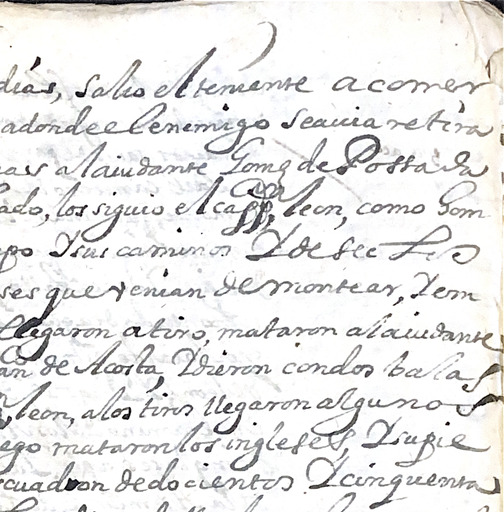 dias, salio el teniente a comer
adonde el enemigo seauia retira
al aiudante Gomez de Possada
ado, los siguio el capp,an leon, como hom
po Y sus caminos Y de
ses que venian de montear, Y em
llegaron a tiro, mataron al aiudante
an de Acosta, Y dieron con dos balas
leon, a los tiros llegaron algunos
ego mataron los ingleses, Y supie
cuadron de docientos Y cinquenta